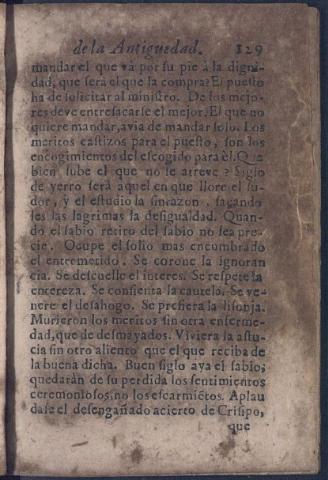 de la Antiguedad. 129
mandar el que và por su pie à la digni-
dad, que serà el que la compra? El puesto
ha de solicitar al ministro. De los mejo-
res deve entresacarse el mejor. El que no
quiere mandar, avia de mandar solo. Los
meritos castizos para el puesto, son los
encogimientos del escogido para èl. Que
bien sube el que no se atreve? Siglo
de yerro serà aquel en que llore el su-
dor, y el estudio la sinrazon, sacando
les las lagrimas la desigualdad. Quan-
do el sabio retiro del sabio no sea pre-
cie. Ocupe el solio mas encumbrado
el entremetido. Se corone la ignoran
cia. Se descuelle el interes. Se respete la
entereza. Se consienta la cautela. Se ve-
nere el desahogo. Se prefiera la lisonja.
Murieron los meritos sin otra enferme-
dad, que de desmayados. Viviera la astu-
cia sin otro aliento que el que reciba de
la buena dicha. Buen siglo aya el sabio;
quedaràn de su perdida los sentimientos
ceremoniosos, no los escarmietos. Aplau
dase el desengañado acierto de Crispo,
que